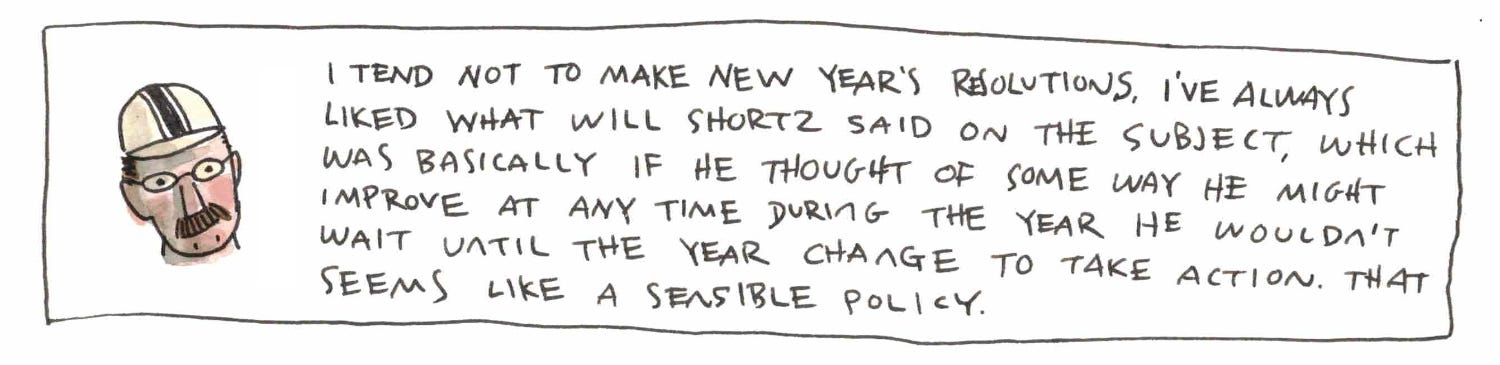 I TEND NOT TO MAKE NEW YEAR'S RESOLUTIONS, I'VE ALWAYS
LIKED WHAT WILL SHORTZ SAID ON THE SUBJECT, WHICH
WAS BASICALLY IF HE THOUGHT OF SOME WAY HE MIGHT
IMPROVE AT ANY TIME DURING THE YEAR HE WOULDN'T
WAIT UNTIL THE YEAR CHANGE TO TAKE ACTION. THAT
SEEMS LIKE A SENSIBLE POLICY.